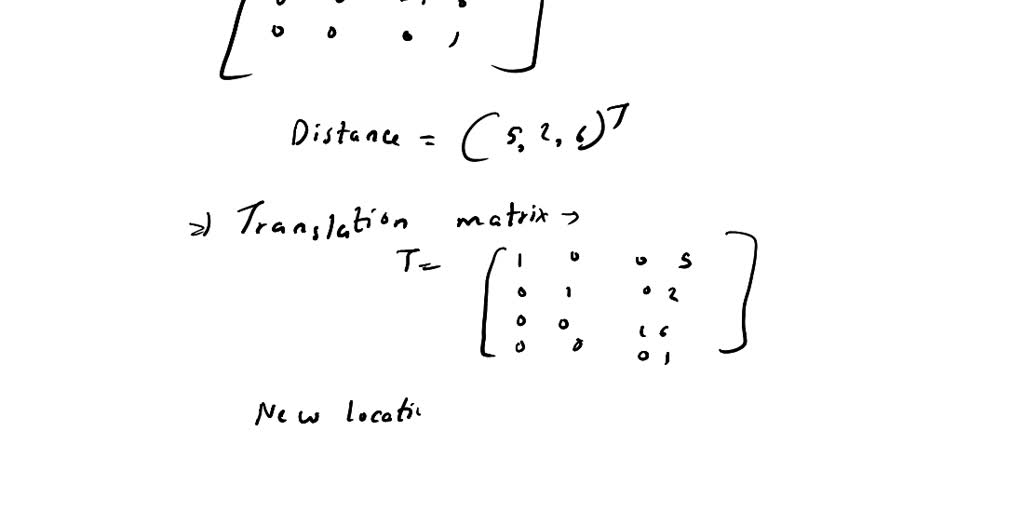 0 0 0 1
Distance = (5, 2, 6)^T
=> Translation matrix →
T =
1 0 0 5
0 1 0 2
0 0 1 6
0 0 0 1
New locati